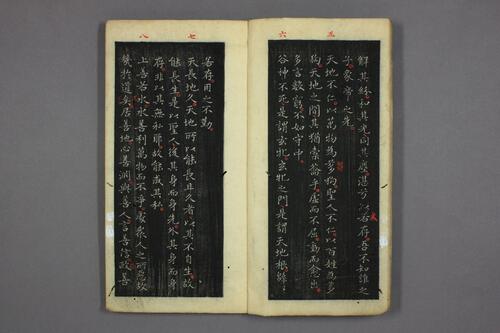 五
解其紛和其光同其塵湛兮似若存吾不知誰之
子象帝之先
六
天地不仁以萬物為芻狗聖人不仁以百姓為芻
狗天地之間其猶橐籥乎虛而不屈動而愈出
多言數窮不如守中
谷神不死是謂玄牝玄牝之門是謂天地根綿〻
若存用之不勤
七
天長地久天地所以能長且久者以其不自生故
能長生是以聖人後其身而身先外其身而身
存非以其無私耶故能成其私
八
上善若水水善利萬物而不爭處衆人之所惡故
幾於道矣居善地心善淵與善人言善信政善